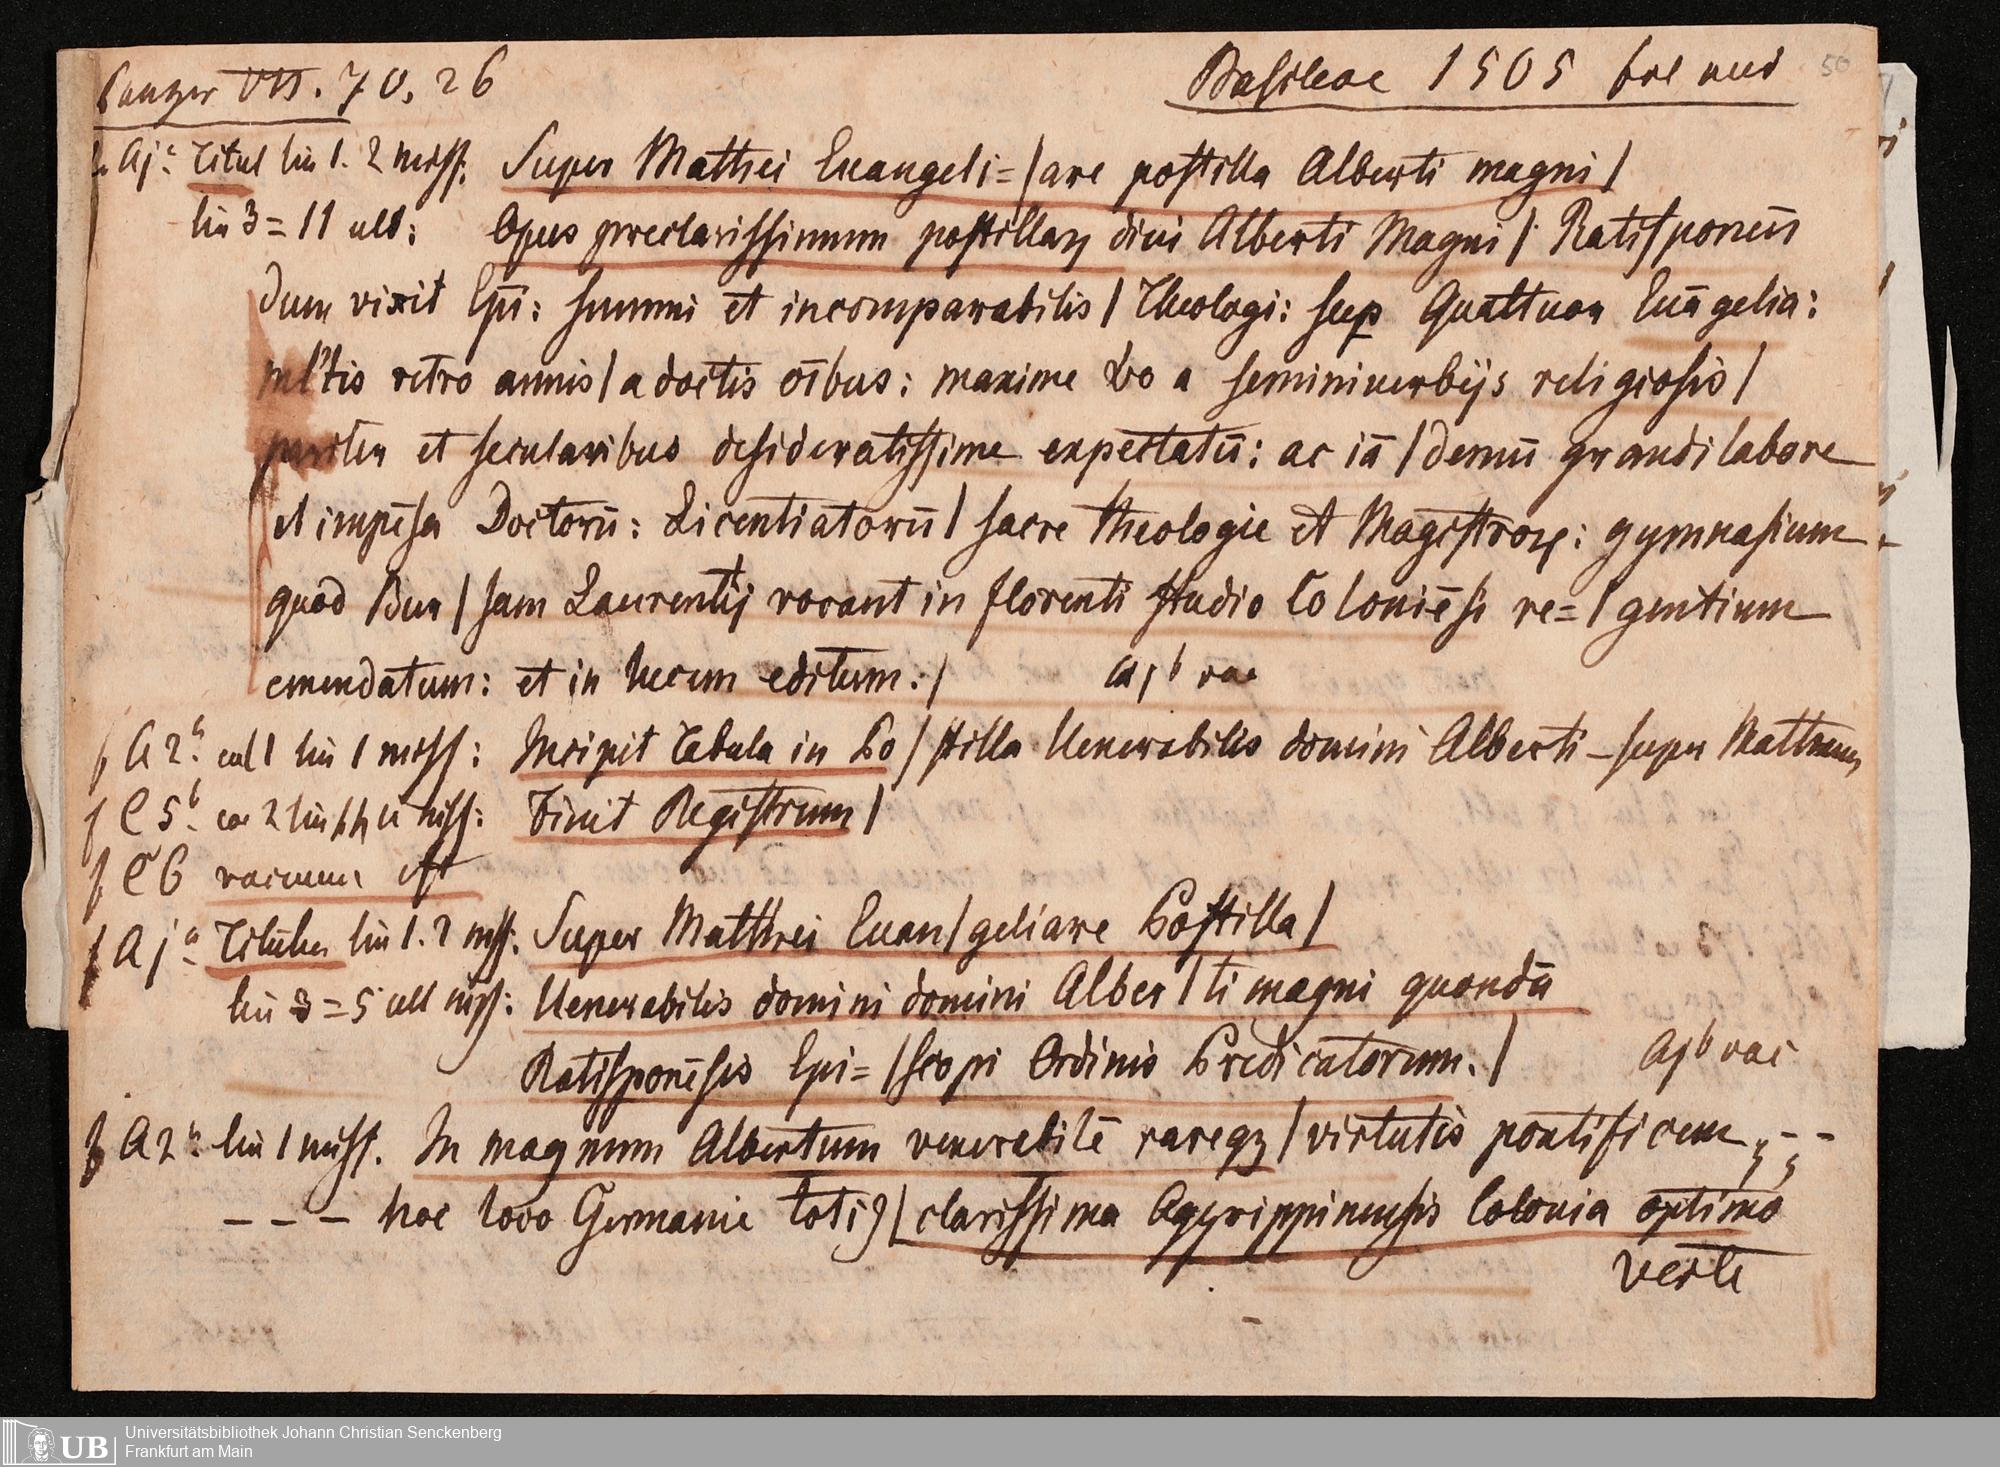 Panzer VII. 70, 26 Basileae 1505 fol
50
Aj Titul lin 1. 2 miss. Super Mathei Euangeli=|are postilla Alberti magni|
lin 3=11 Opus preclarissimum postillaꝝ diui Alberti Magni| Ratisponeñ
dum vixit Epi: summi et incomparabilis| Theologi: sup Quattuor Euāgelia:
ml'tis retro annis| a doctis oībus: maxime vo a seminiuerbijs religiosis|
pariter et secularibus desideratissime expectatū: ac iā |demū grandi labore
et impēsa Doctorū: Licentiatorū| sacre theologie et Magistroꝝ: gymnasium
quod Bur|sam Laurentij vocant in florenti studio Coloniēsi re=|gentium
emendatum: et in lucem editum:| Ajᵇ vac
f A2ᵃ col 1 lin 1 miss: Incipit Tabula in Po|stilla Uenerabilis domini Alberti – super Mattheum
f C5ᵇ co 2 lin miss: Finit Registrum|
f C6 vacuum est
f Ajᵃ Titulus lin 1. 2 miss. Super Matthei Euan|geliare Postilla|
lin 3=5 miss: Uenerabilis domini domini Alber|ti magni quondā
Ratisponēsis Epi=|scopi Ordinis Predicatorum.| Ajᵇ vac
f A2ᵃ lin 1 miss. In magnum Albertum venerabilē rareqꝫ|virtutis pontificem,
– – – hoc loco Germanie toti9|clarissima Agyrippinensis Colonia optimo
verte
UB Universitätsbibliothek Johann Christian Senckenberg
Frankfurt am Main